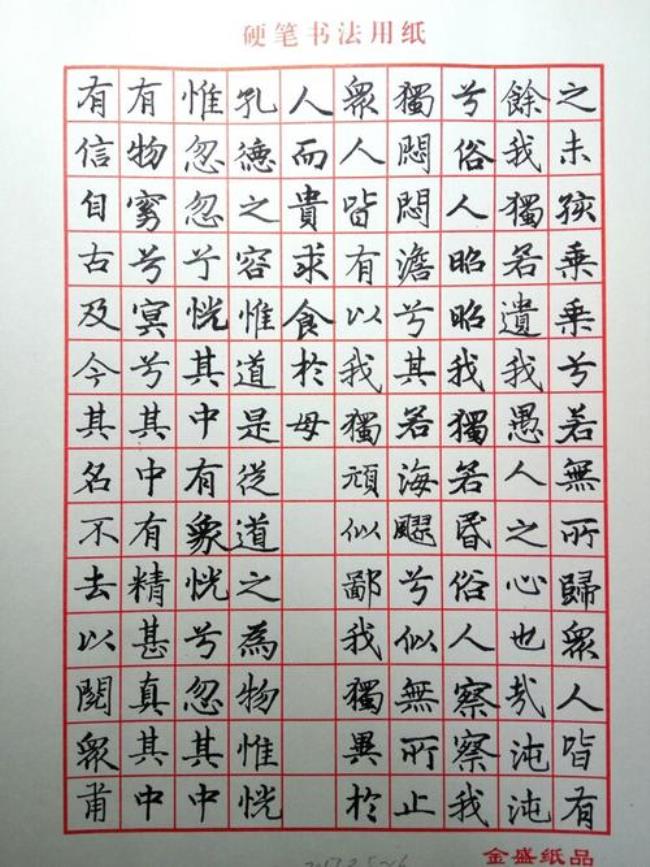 硬笔书法用纸
之未孩乘乘兮若無所歸眾人皆有
餘我獨若遺我愚人之心也哉沌沌
兮俗人昭昭我獨若昏俗人察察我
獨悶悶澹兮其若海飂兮似無所止
眾人皆有以我獨頑似鄙我獨異於
人而貴求食於母
孔德之容惟道是從道之為物惟恍
惟忽忽兮恍其中有象恍兮忽其中
有物窈兮冥兮其中有精甚真其中
有信自古及今其名不去以閱眾甫
金盛纸品